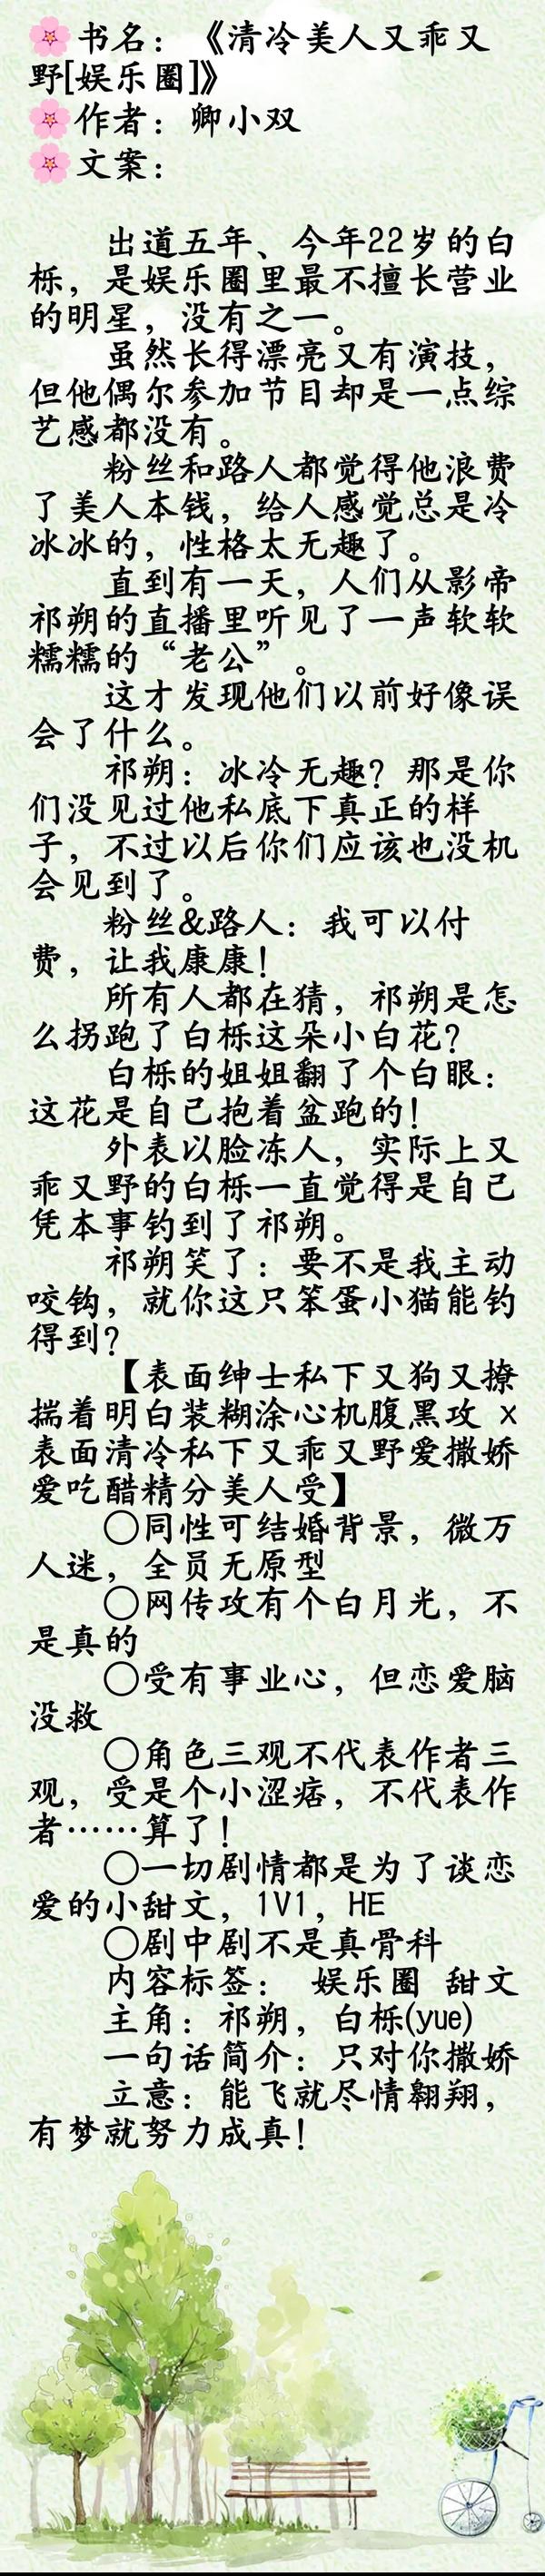 🌸书名：《清冷美人又乖又
野[娱乐圈]》
🌸作者：卿小双
🌸文案：
出道五年、今年22岁的白
栎，是娱乐圈里最不擅长营业
的明星，没有之一。
虽然长得漂亮又有演技，
但他偶尔参加节目却是一点综
艺感都没有。
粉丝和路人都觉得他浪费
了美人本钱，给人感觉总是冷
冰冰的，性格太无趣了。
直到有一天，人们从影帝
祁朔的直播里听见了一声软软
糯糯的“老公”。
这才发现他们以前好像误
会了什么。
祁朔：冰冷无趣？那是你
们没见过他私底下真正的样
子，不过以后你们应该也没机
会见到了。
粉丝&路人：我可以付
费，让我康康！
所有人都在猜，祁朔是怎
么拐跑了白栎这朵小白花？
白栎的姐姐翻了个白眼：
这花是自己抱着盆跑的！
外表以脸冻人，实际上又
乖又野的白栎一直觉得是自己
凭本事钓到了祁朔。
祁朔笑了：要不是我主动
咬钩，就你这只笨蛋小猫能钓
得到？
【表面绅士私下又狗又撩
揣着明白装糊涂心机腹黑攻 x
表面清冷私下又乖又野爱撒娇
爱吃醋精分美人受】
○同性可结婚背景，微万
人迷，全员无原型
○网传攻有个白月光，不
是真的
○受有事业心，但恋爱脑
没救
○角色三观不代表作者三
观，受是个小涩痞，不代表作
者……算了！
○一切剧情都是为了谈恋
爱的小甜文，1V1，HE
○剧中剧不是真骨科
内容标签： 娱乐圈 甜文
主角：祁朔，白栎(yue)
一句话简介：只对你撒娇
立意：能飞就尽情翱翔，
有梦就努力成真！